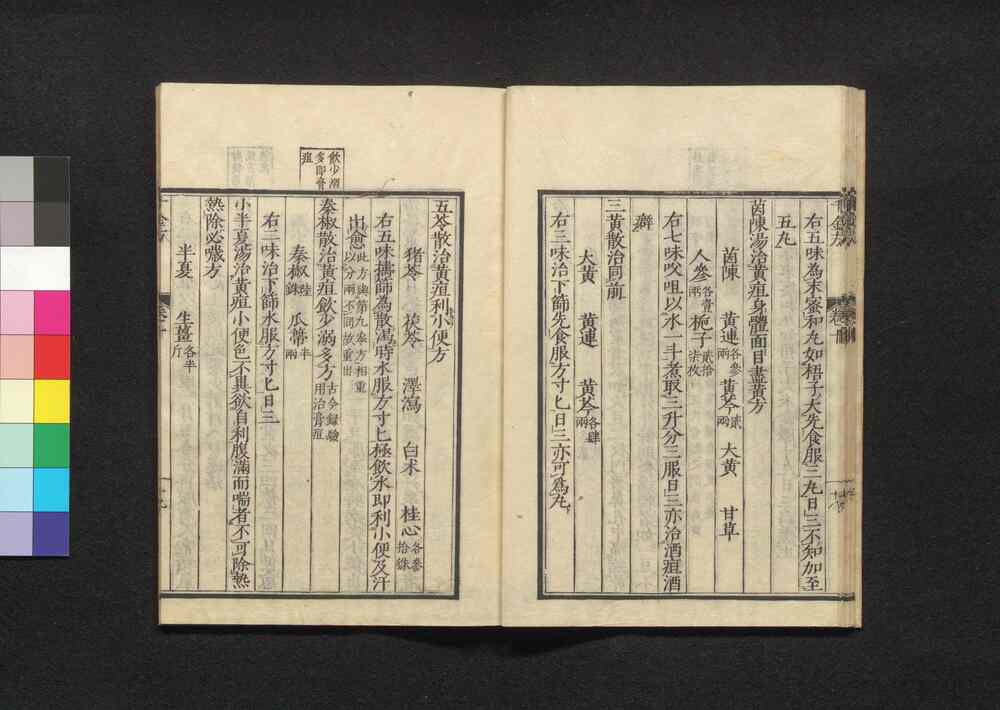 右五味爲末蜜和丸如梧子大先食服三丸日三不知加至
五丸
茵陳湯治黃疸身體面目盡黃方
茵陳 黃連各參兩 黃芩貳兩 大黃 甘草
人參各壹兩 梔子貳拾柒枚
右七味㕮咀以水一斗煮取三升分三服日三亦治酒疸酒
癖
三黃散治同前
大黃 黃連 黃芩各肆兩
右三味治下篩先食服方寸匕日三亦可爲丸
五苓散治黃疸利小便方
猪苓 茯苓 澤瀉 白朮 桂心各參拾銖
右五味擣篩爲散渴時水服方寸匕極飲水即利小便及汗
出愈此方與第九卷方相重以分兩不同故重出
飲少溺多即膏疸
秦椒散治黃疸飲少溺多方古今錄驗用治膏疸
秦椒陸銖 瓜蔕半兩
右二味治下篩水服方寸匕日三
小半夏湯治黃疸小便色不異欲自利腹滿而喘者不可除熱
熱除必噦方
半夏 生薑各半斤